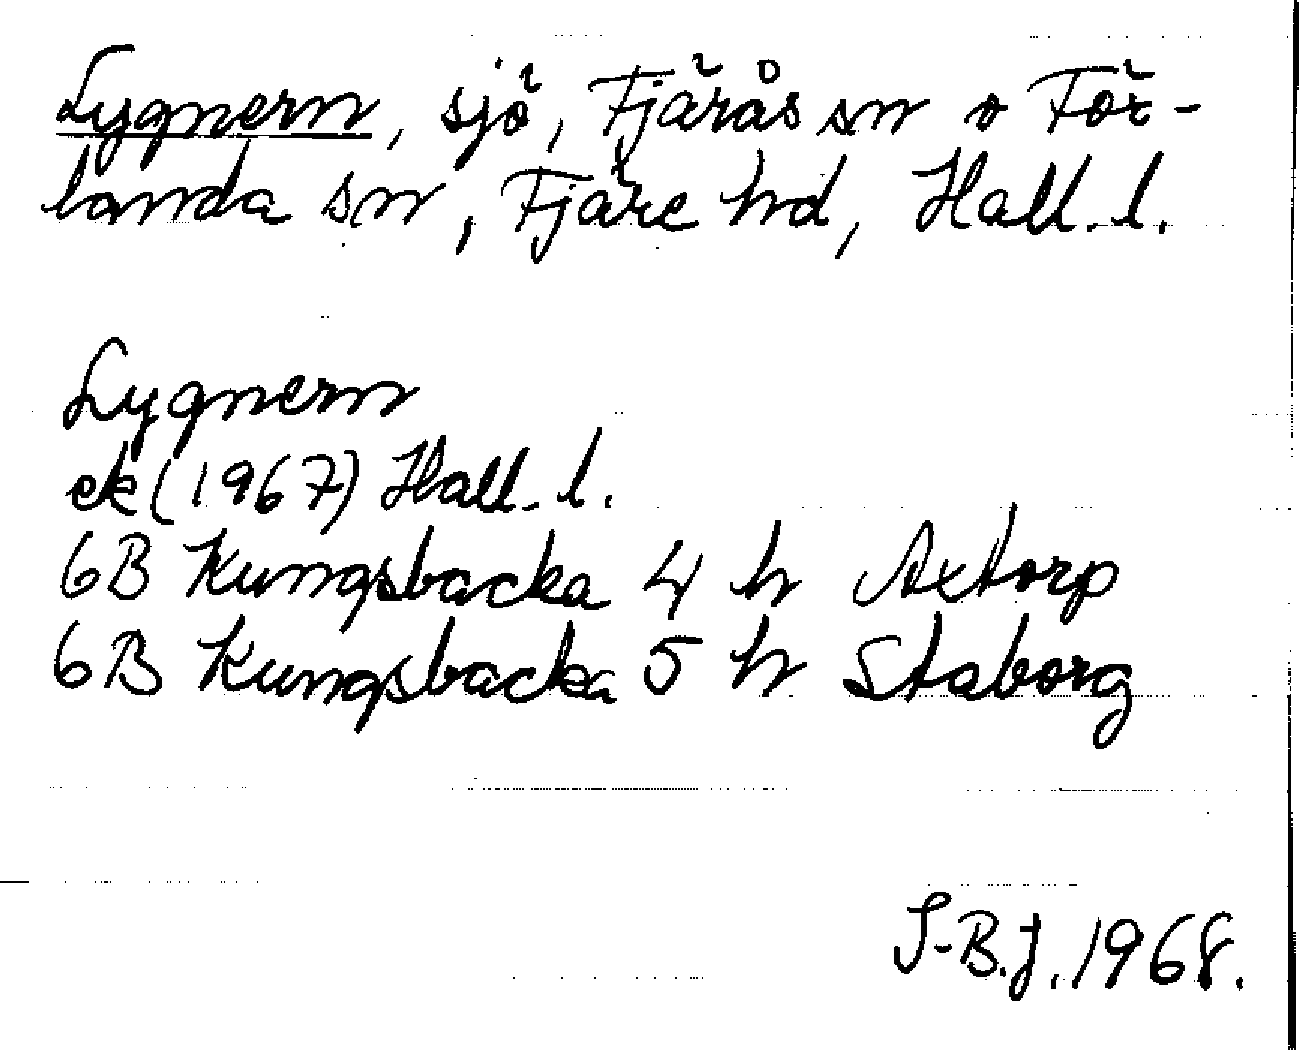 Lygnern, sjö, Fjärås sn o För-
landa sn, Fjäre hd, Hall. l.
Lygnern
ek (1967) Hall. l.
6B Kungsbacka 4 h Axtorp
6B Kungsbacka 5 h Staborg
S-B.J. 1968.